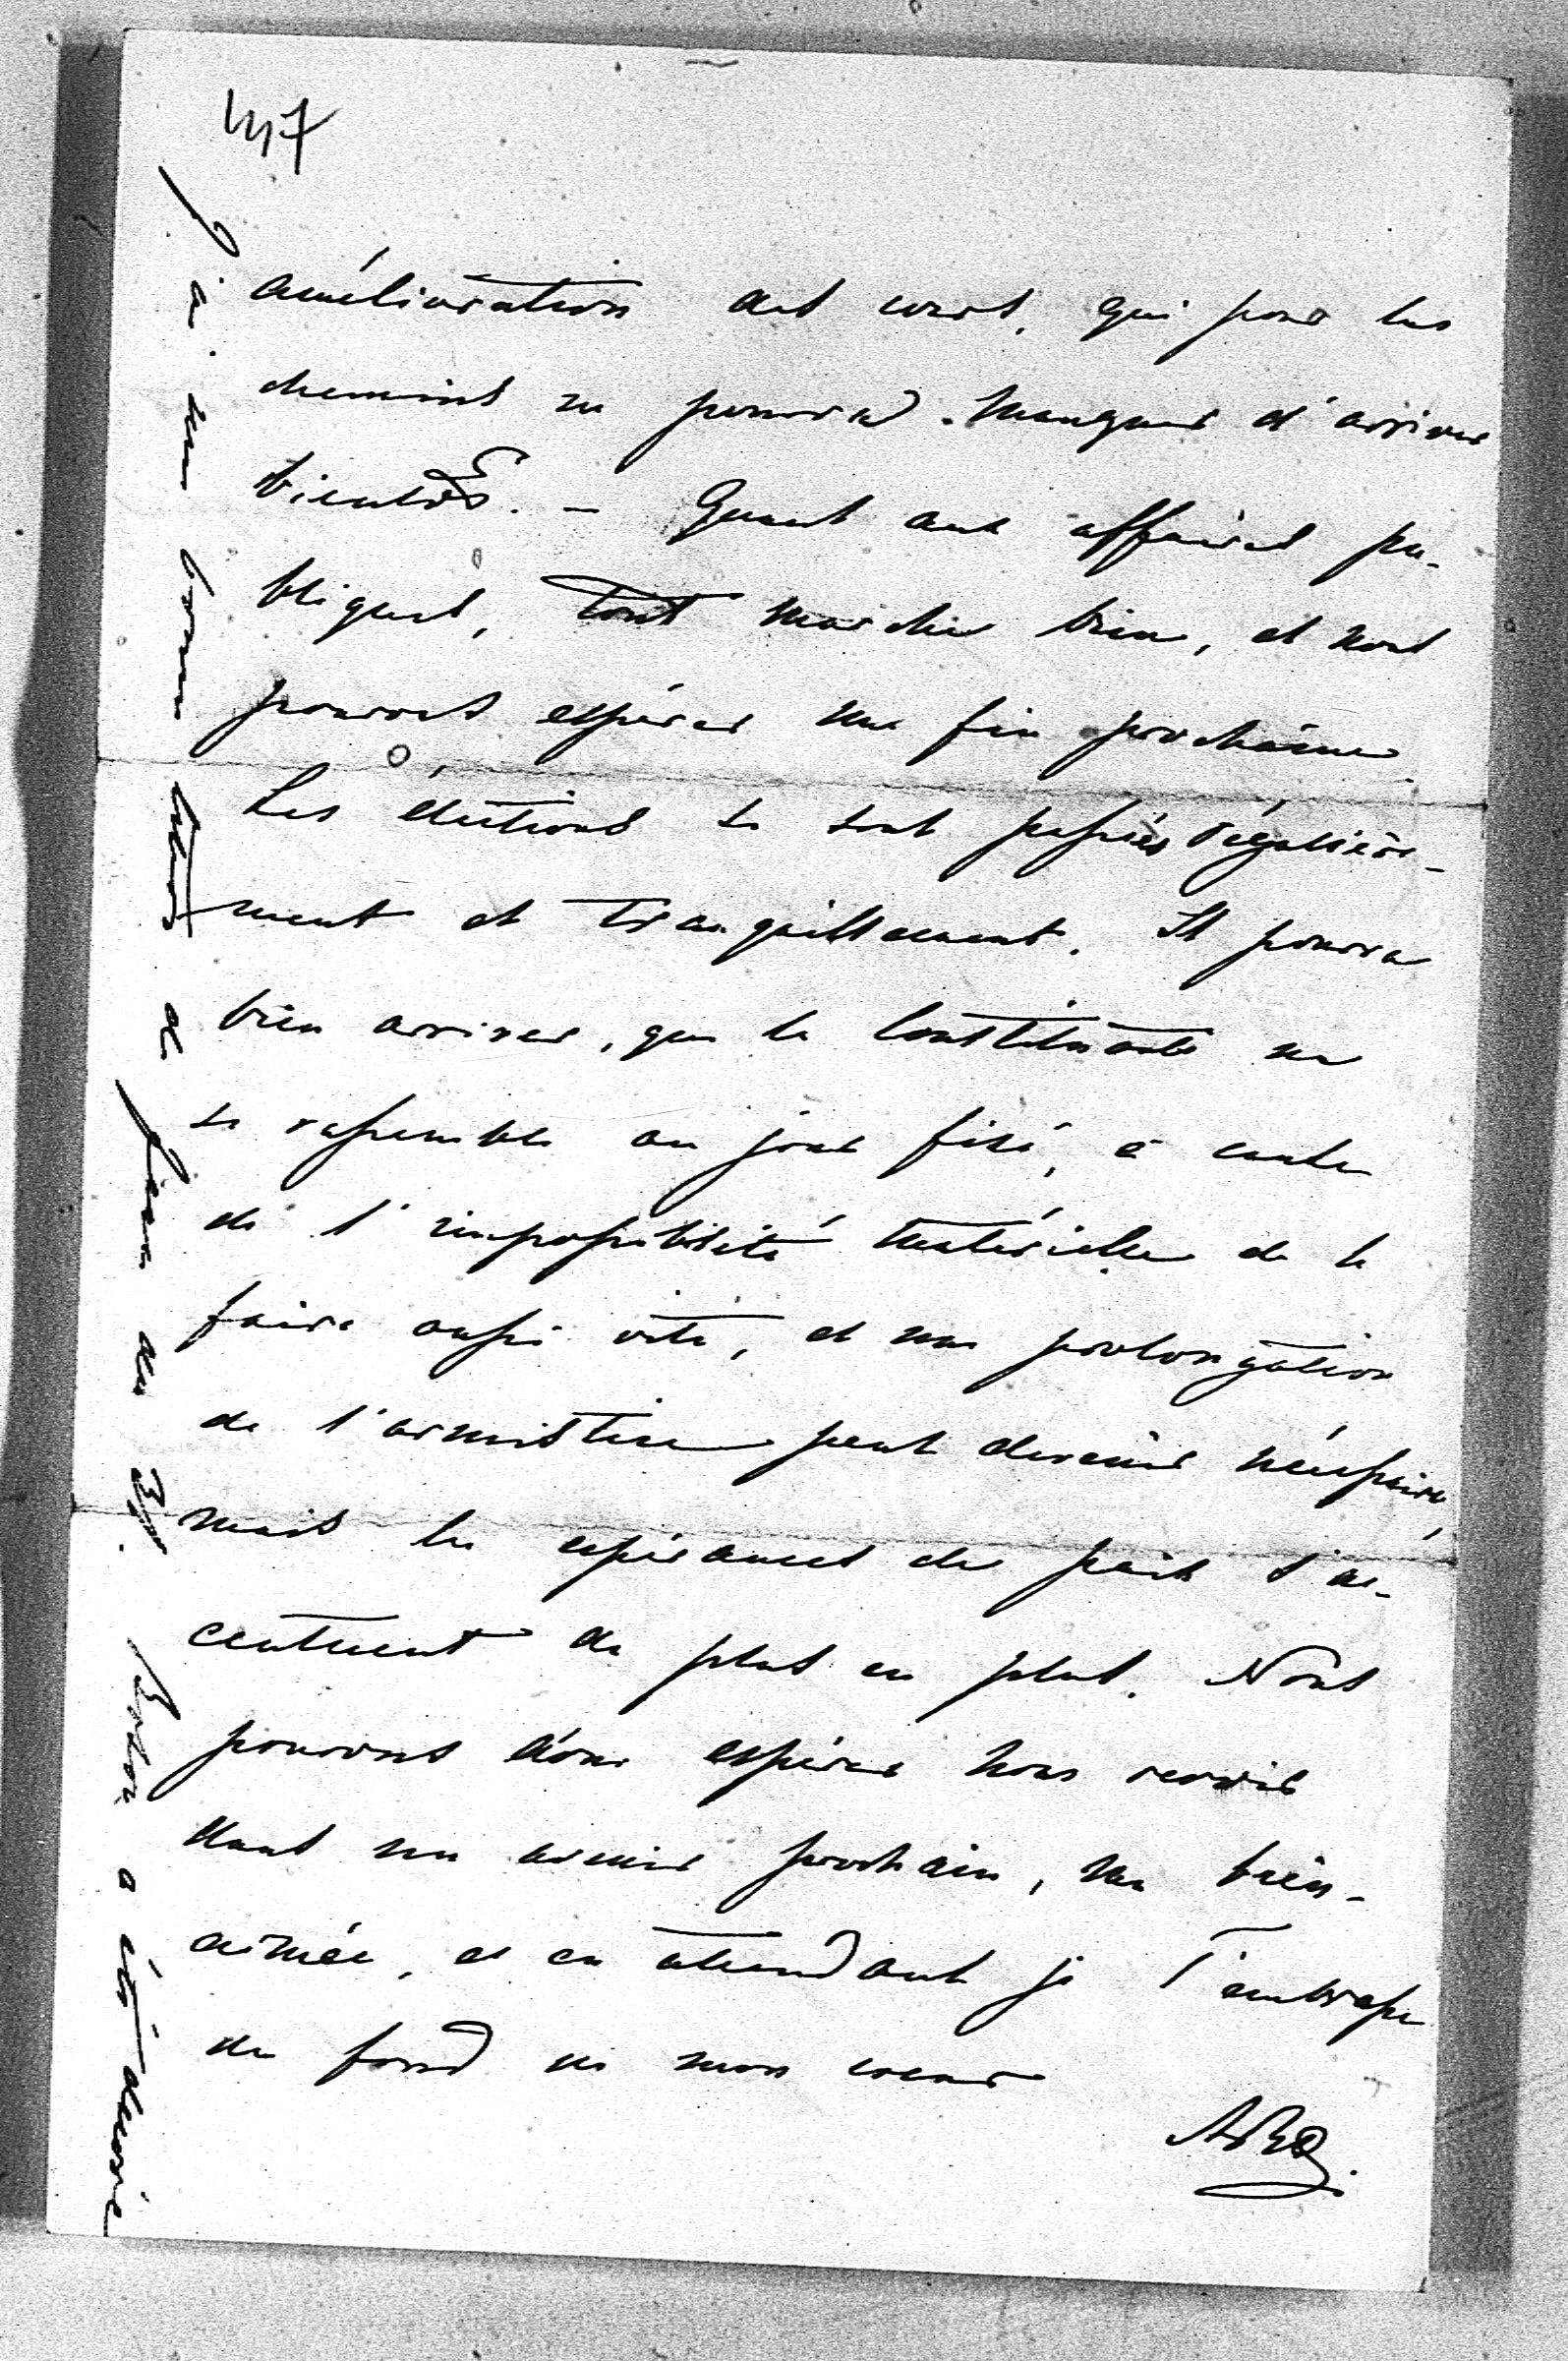 447
amélioration des cours, qui pour les
chemins ne pourra manquer d'arriver
bientôt. – Quant aux affaires pu-
bliques, tout marche bien, et nous
pouvons espérer une fin prochaine.
Les élections se sont passées régulière-
ment et tranquillement. Il pourra
bien arriver, que la Constituante ne
se rassemble au jour fixé, à cause
de l'impossibilité matérielle de le
faire aussi vite, et une prolongation
de l'armistice peut devenir nécessaire,
mais les espérances de paix s'ac-
centuent de plus en plus. Nous
pouvons donc espérer nous revoir
dans un avenir prochain, ma bien-
aimée, et en attendant je t'embrasse
du fond de mon coeur
J'ai une bonne lettre de du 31. a été décoré